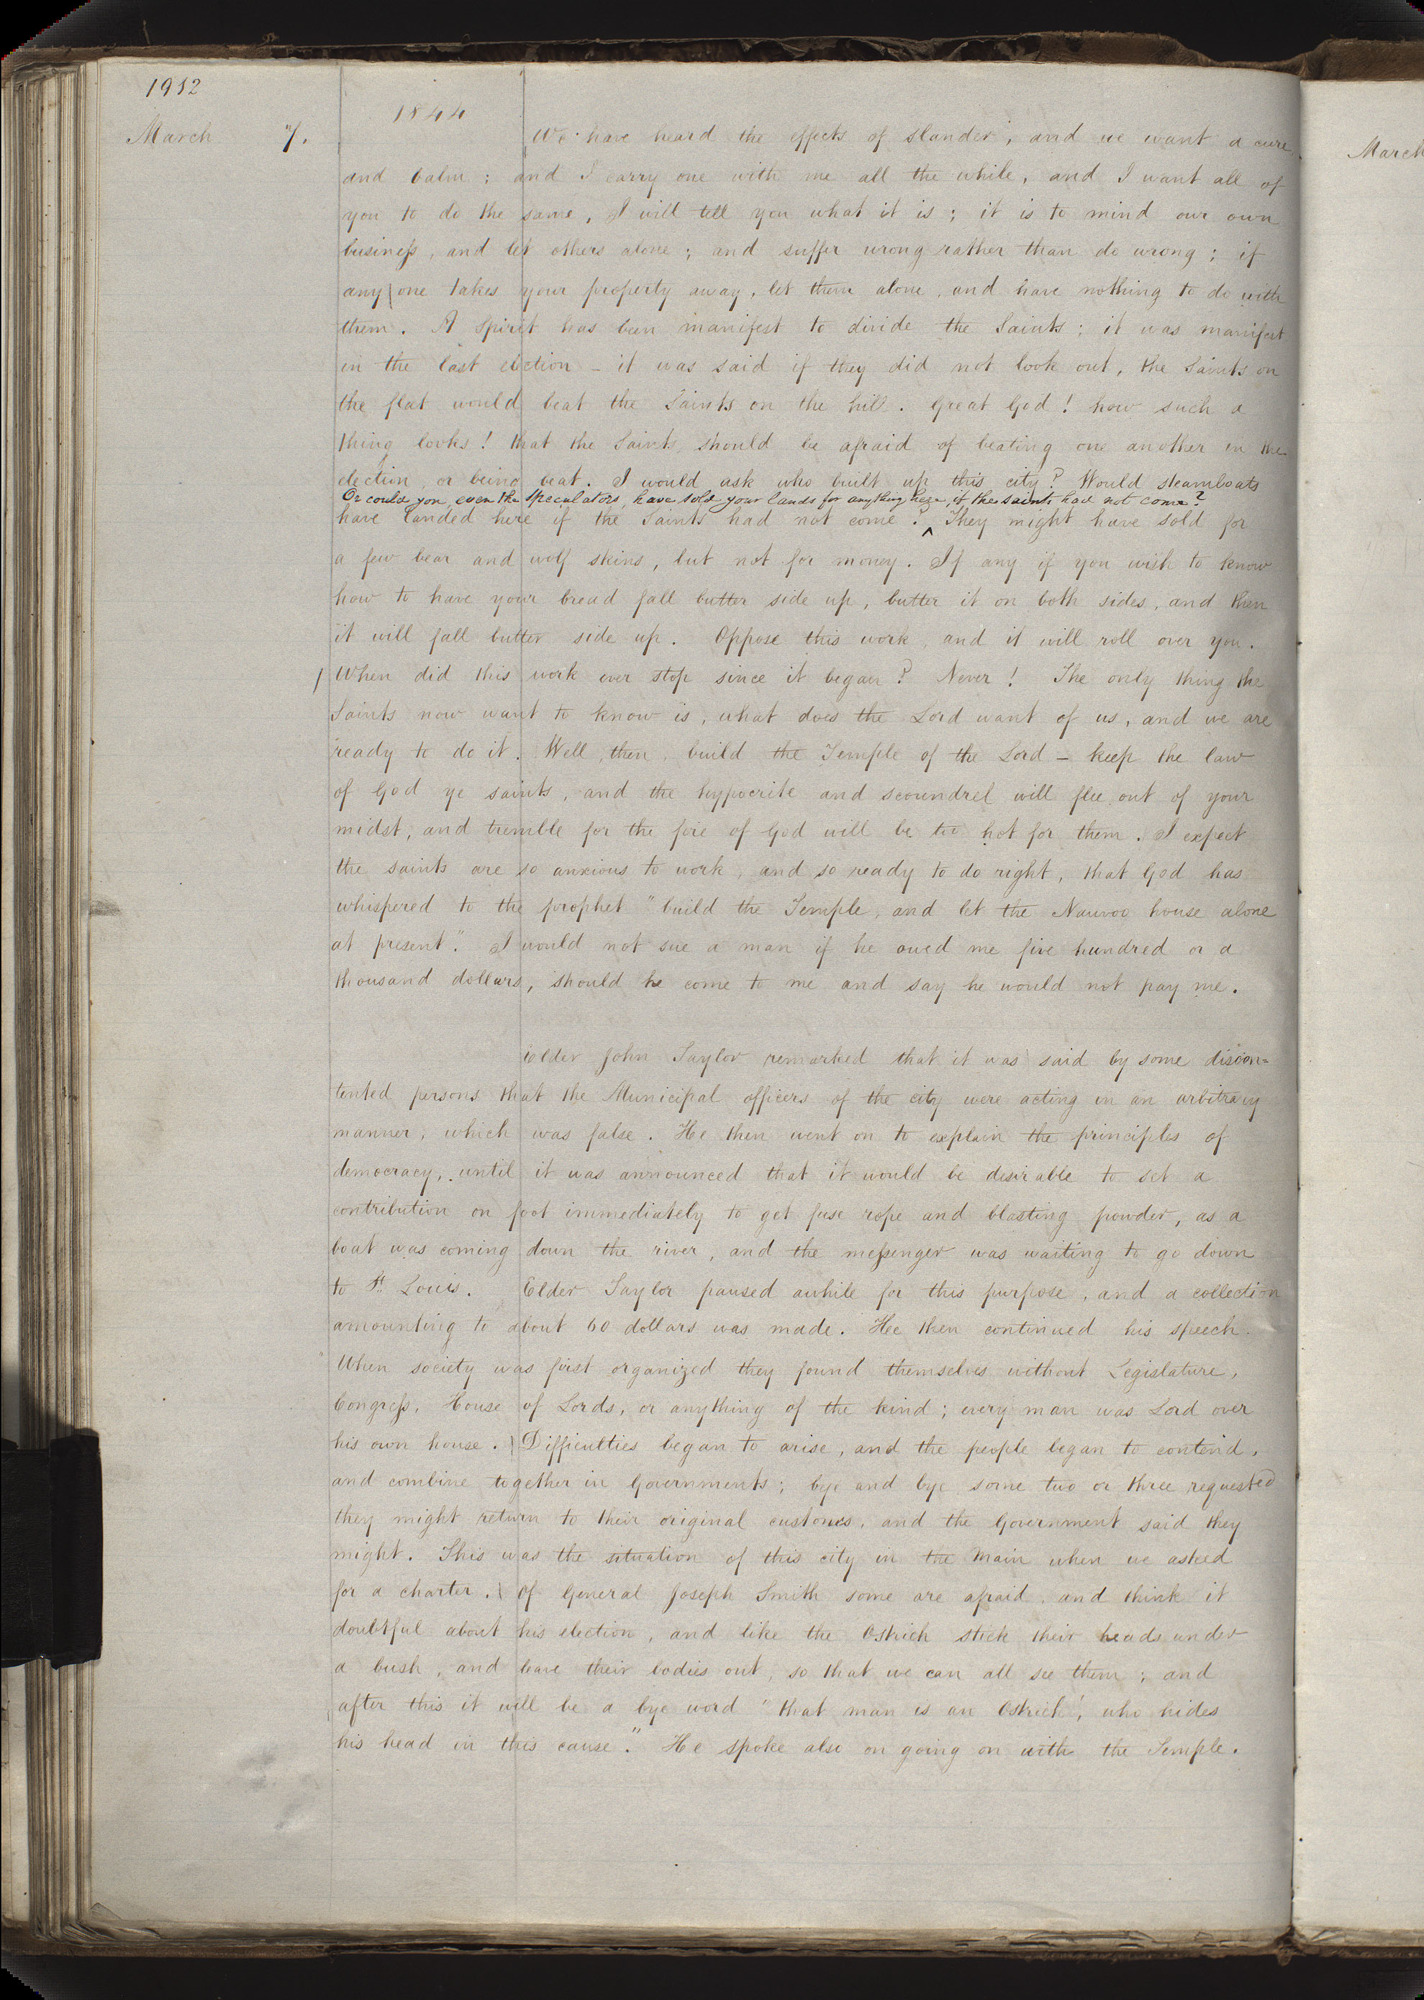 1912
1844
March 7.
We have heard the effects of slander, and we want a cure
and balm; and I carry one with me all the while, and I want all of
you to do the same, I will tell you what it is; it is to mind our own
business, and let others alone; and suffer wrong rather than do wrong; if
any one takes your property away, let them alone, and have nothing to do with
them. A spirit has been manifest to divide the Saints; it was manifest
in the last election – it was said if they did not look out, the Saints on
the flat would beat the Saints on the hill. Great God! how such a
thing looks! that the Saints should be afraid of beating one another in the
election, or being beat. I would ask who built up this city? Would steamboats
Or could you, even the speculators, have sold your lands for anything here, if the saints had not come?
have landed here if the Saints had not come? ^ They might have sold for
a few bear and wolf skins, but not for money. If any if you wish to know
how to have your bread fall butter side up, butter it on both sides, and then
it will fall butter side up. Oppose this work, and it will roll over you.
When did this work ever stop since it began? Never! The only thing the
Saints now want to know is, what does the Lord want of us, and we are
ready to do it. Well, then, build the Temple of the Lord – keep the law
of God ye saints, and the hypocrite and scoundrel will flee out of your
midst, and tremble for the fire of God will be too hot for them. I expect
the saints are so anxious to work, and so ready to do right, that God has
whispered to the prophet "build the Temple, and let the Nauvoo house alone
at present". I would not sue a man if he owed me five hundred or a
thousand dollars, should he come to me and say he would not pay me.
Elder John Taylor remarked that it was said by some discon=
tented persons that the Municipal officers of the city were acting in an arbitrary
manner, which was false. He then went on to explain the principles of
democracy, until it was announced that it would be desirable to set a
contribution on foot immediately to get fuse rope and blasting powder, as a
boat was coming down the river, and the messenger was waiting to go down
to St. Louis. Elder Taylor paused awhile for this purpose, and a collection
amounting to about 60 dollars was made. He then continued his speech.
When society was first organized they found themselves without Legislature,
Congress, House of Lords, or anything of the kind; every man was Lord over
his own house. Difficulties began to arise, and the people began to contend,
and combine together in Governments; bye and bye some two or three requested
they might return to their original customs, and the Government said they
might. This was the situation of this city in the main when we asked
for a charter. Of General Joseph Smith some are afraid, and think it
doubtful about his election, and like the Ostrich stick their heads under
a bush, and leave their bodies out, so that we can all see them; and
after this it will be a bye word "that man is an Ostrich, who hides
his head in this cause." He spoke also on going on with the Temple.
March